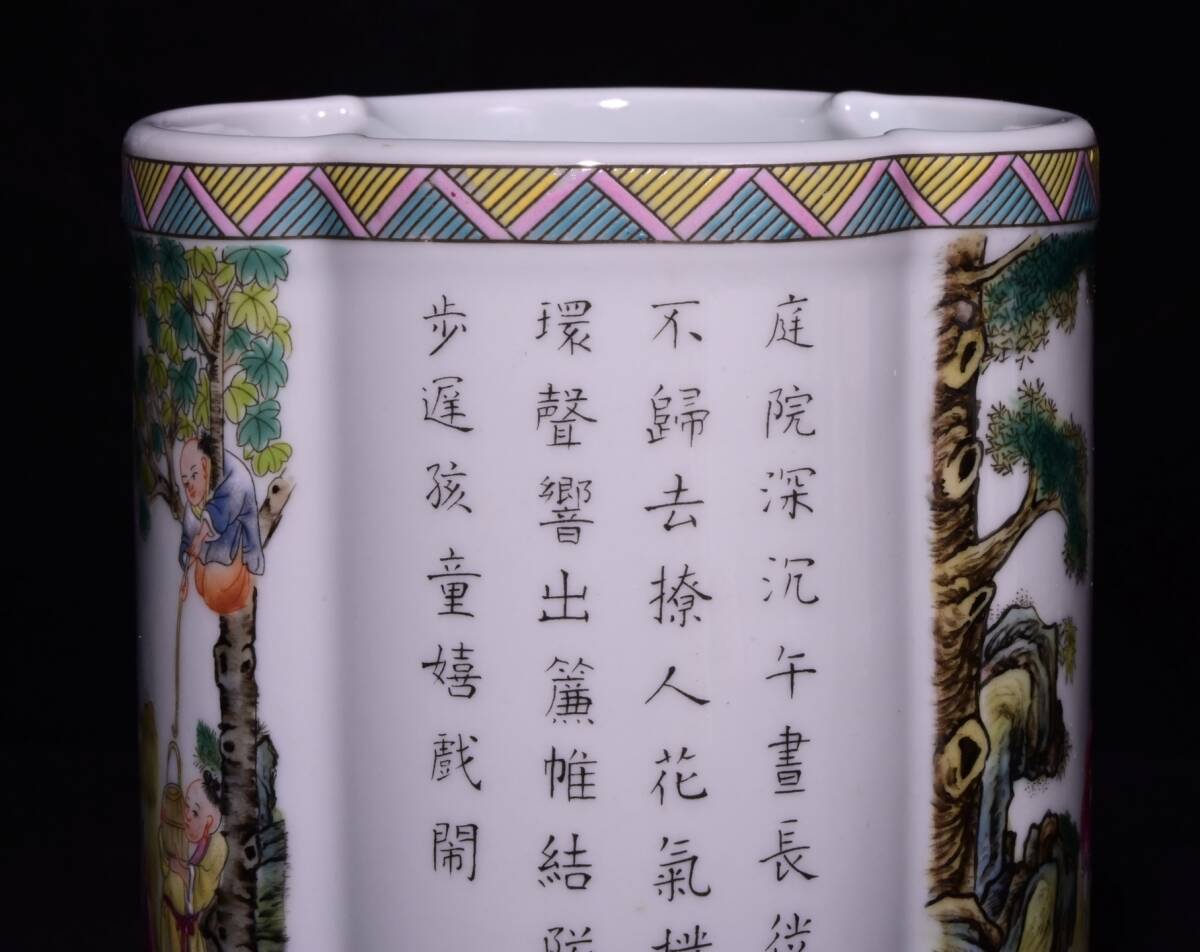 庭院深沉午晝長
不歸去撩人花氣
環聲響出簾帷結
步遲孩童嬉戲鬧